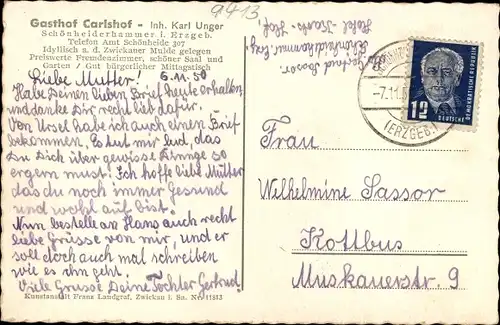 9413
Gasthof Carlshof - Inh. Karl Unger
Schönheiderhammer i. Erzgeb.
Telefon Amt Schönheide 307
Idyllisch a. d. Zwickauer Mulde gelegen
Preiswerte Fremdenzimmer, schöner Saal und
Garten / Gut bürgerlicher Mittagstisch
6.11.50
Liebe Mutter!
Habe Deinen lieben Brief heute erhalten
und danke Dir recht lieb dafür.
Von Ursel habe ich auch einen Brief
bekommen. Es tut mir leid, das
Du Dich über gewisse Dinge so
ergern must. Ich hoffe liebe Mutter
das du noch immer Gesund
und wohl auf bist.
Nun bestelle an Hans auch recht
liebe Grüsse von mir, und er
soll doch auch mal schreiben
wie es ihn geht.
Viele Grüsse Deine Tochter Gertrud.
Kunstanstalt Franz Landgraf, Zwickau i. Sa. Nr. 11813
Gertrud Sassor
Schönheiderhammer, Erzg.
Hotel Karls Hof
-7.11.5
(ERZGEB.)
12
DEUTSCHE
DEMOKRATISCHE REPUBLIK
Frau
Wilhelmine Sassor
Kottbus
Muskauerstr. 9